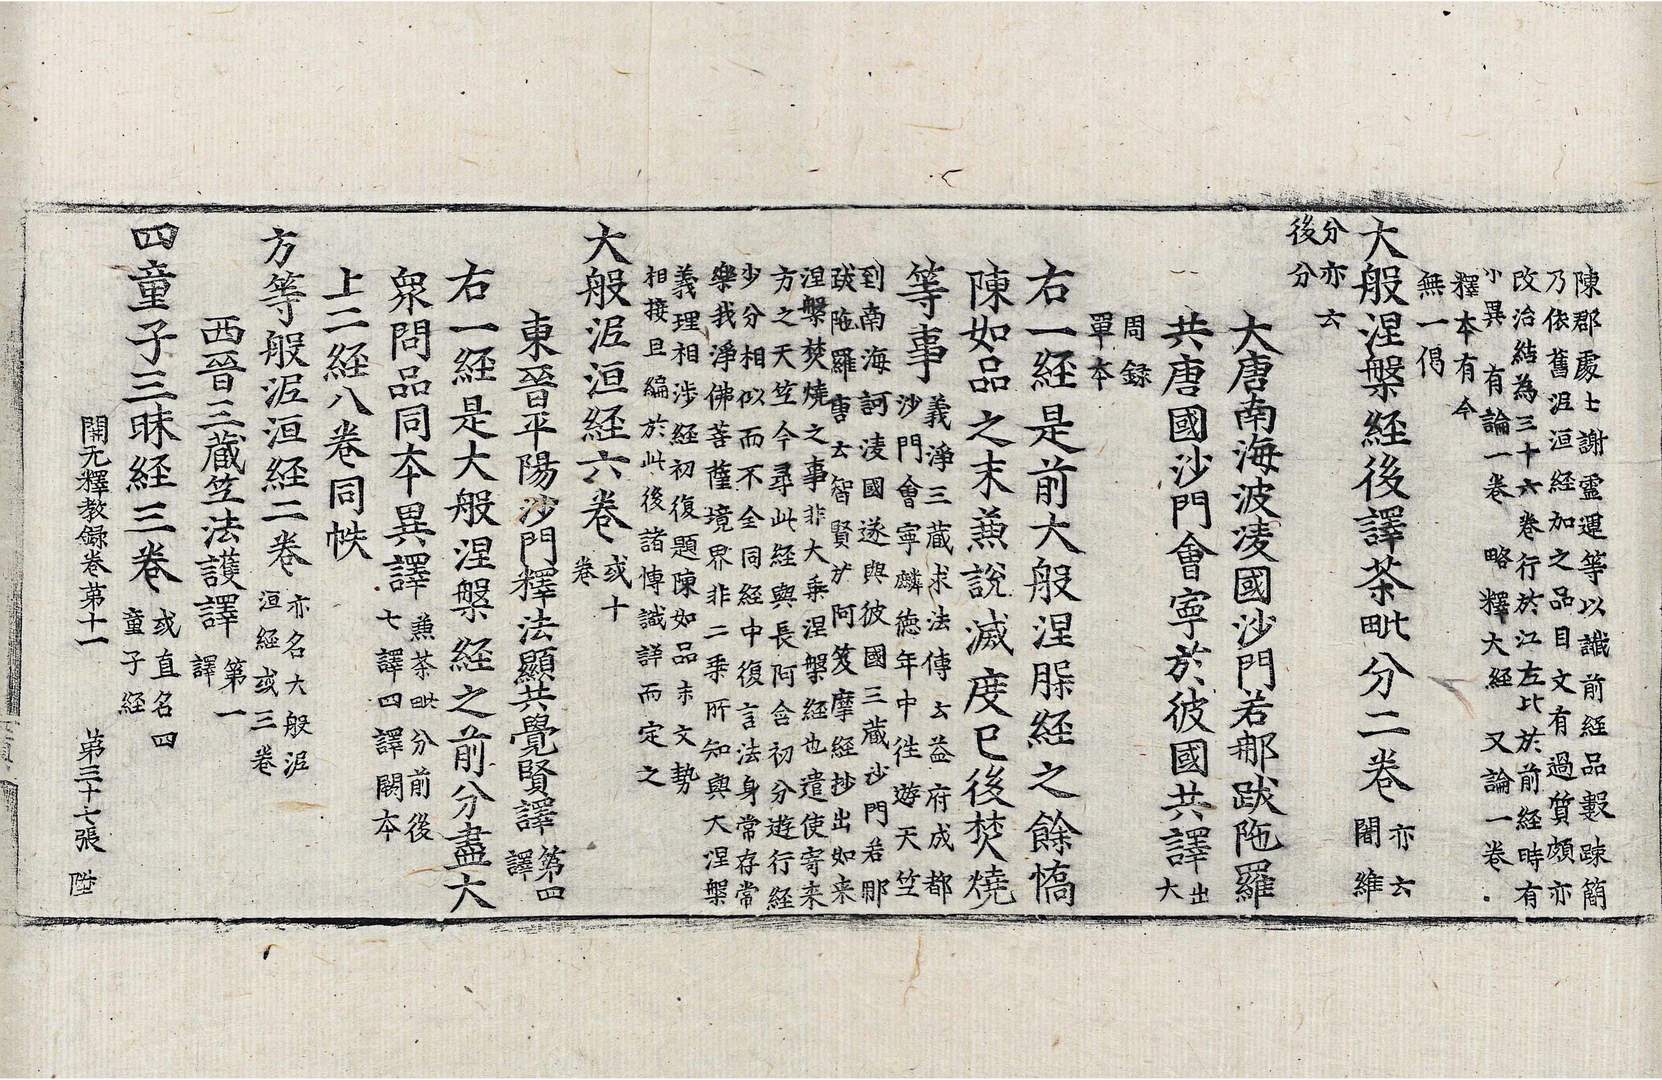 陳郡處士謝靈運等以讖前経品數踈簡
乃依舊泥洹経加之品目文有過質頗亦
改治結為三十六巻行於江左比於前経時有
小異　有論一巻　略釋大経　又論一巻
釋本有今
無一偈
大般涅槃経後譯荼毗分二巻 亦云
闍維
分亦云
後分
大唐南海波淩國沙門若那跋陁羅
共唐國沙門會寧於彼國共譯 出
大
周録
單本
右一経是前大般涅槃経之餘憍
陳如品之末兼說滅度已後焚燒
等事 義淨三蔵求法傳云益府成都
沙門會寧麟徳年中往遊天竺
到南海訶淩國遂與彼國三蔵沙門若那
跋陁羅唐云智賢扵阿笈摩経抄出如来
涅槃焚燒之事非大乗涅槃経也遣使寄来
方之天竺今尋此経與長阿含初分遊行経
少分相似而不全同経中復言法身常存常
樂我淨佛菩薩境界非二乗所知與大涅槃
義理相涉経初復題陳如品末文勢
相接且編於此後諸博識詳而定之
大般泥洹経六巻 或十
巻
東晉平陽沙門釋法顯共覺賢譯 第四
譯
右一経是大般涅槃経之前分盡大
衆問品同本異譯 兼荼毗分前後
七譯四譯闕本
上二経八巻同帙
方等般泥洹経二巻 亦名大般泥
洹経或三巻
西晉三蔵竺法護譯 第一
譯
四童子三昧経三巻 或直名四
童子経
開元釋教録巻第十一　第三十七張　陞